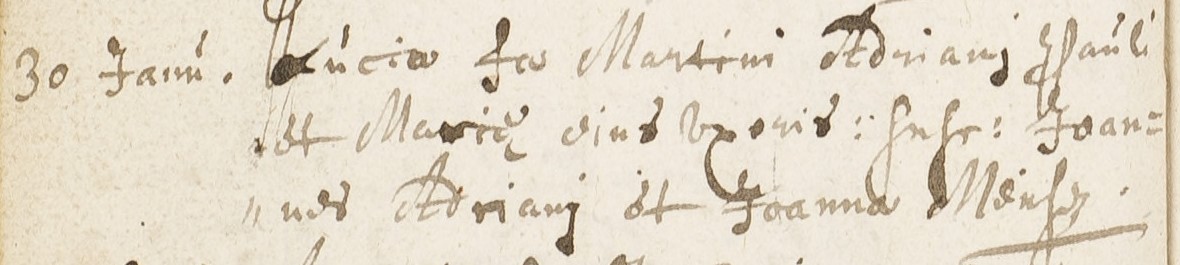 30 Janu. Lucia fa Martini Adrianj Pauli
et Marię eius Uxoris : susc: Joan=
„ nes Adrianj et Joanna